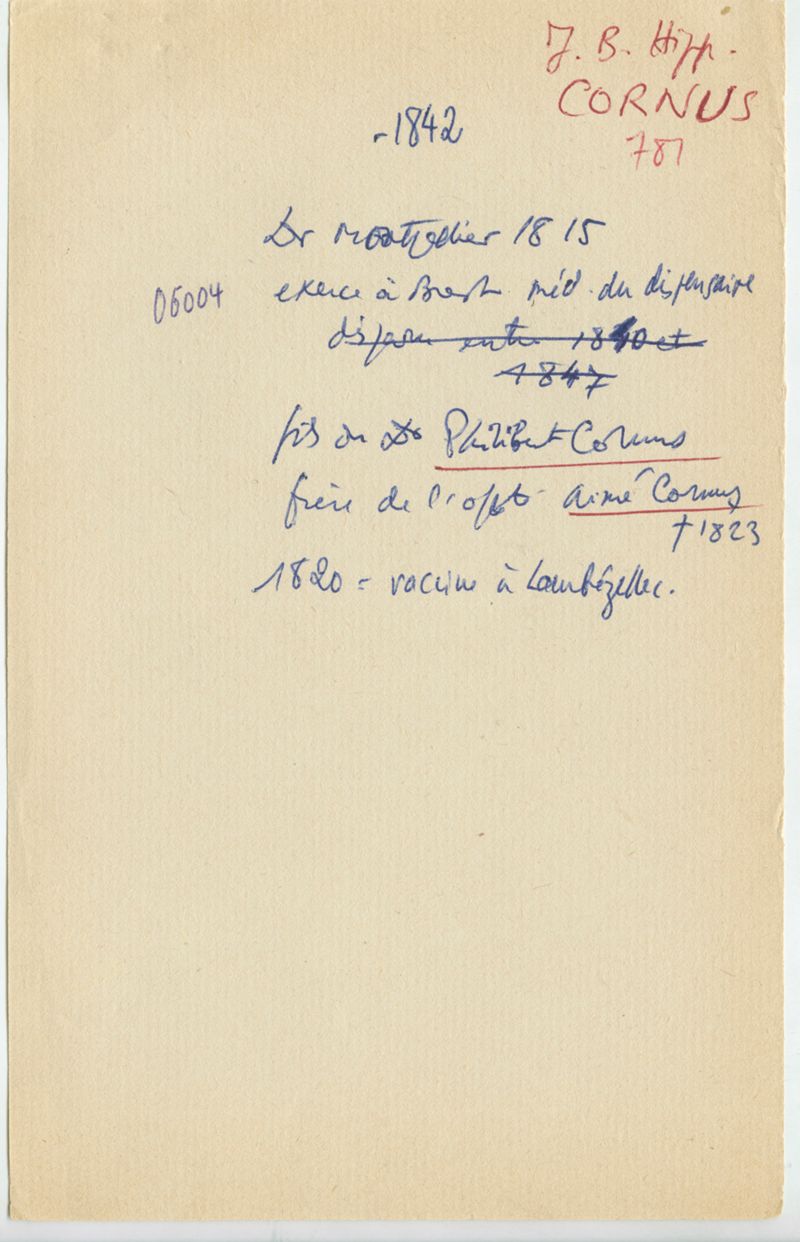 J. B. Hipp.
CORNUS
781
-1842
Dr Montpellier 1815
06004
exerce à Brest méd. du dispensaire
disparu entre 1840 et
1847
fils du Dr Philibert Cornus
frère de l'off. Aimé Cornus
† 1823
1820 = vaccine à Lambézellec.